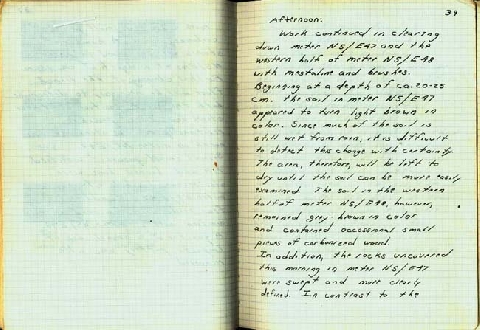 39
Afternoon.
Work continued in clearing
down meter N5/E47 and the
western half of meter N5/E48
with mestarine and brushes.
Beginning at a depth of ca. 20-25
cm. the soil in meter N5/E47
appeared to turn light brown in
color. Since much of the soil is
still wet from rain, it is difficult
to detect this change with certainty.
The area, therefore, will be left to
dry until the soil can be more easily
examined. The soil in the western
half of meter N5/E48, however,
remained grey-brown in color
and contained occassional small
pieces of carbonized wood.
In addition, the rocks uncovered
this morning in meter N5/E47
were swept and more clearly
defined. In contrast to the